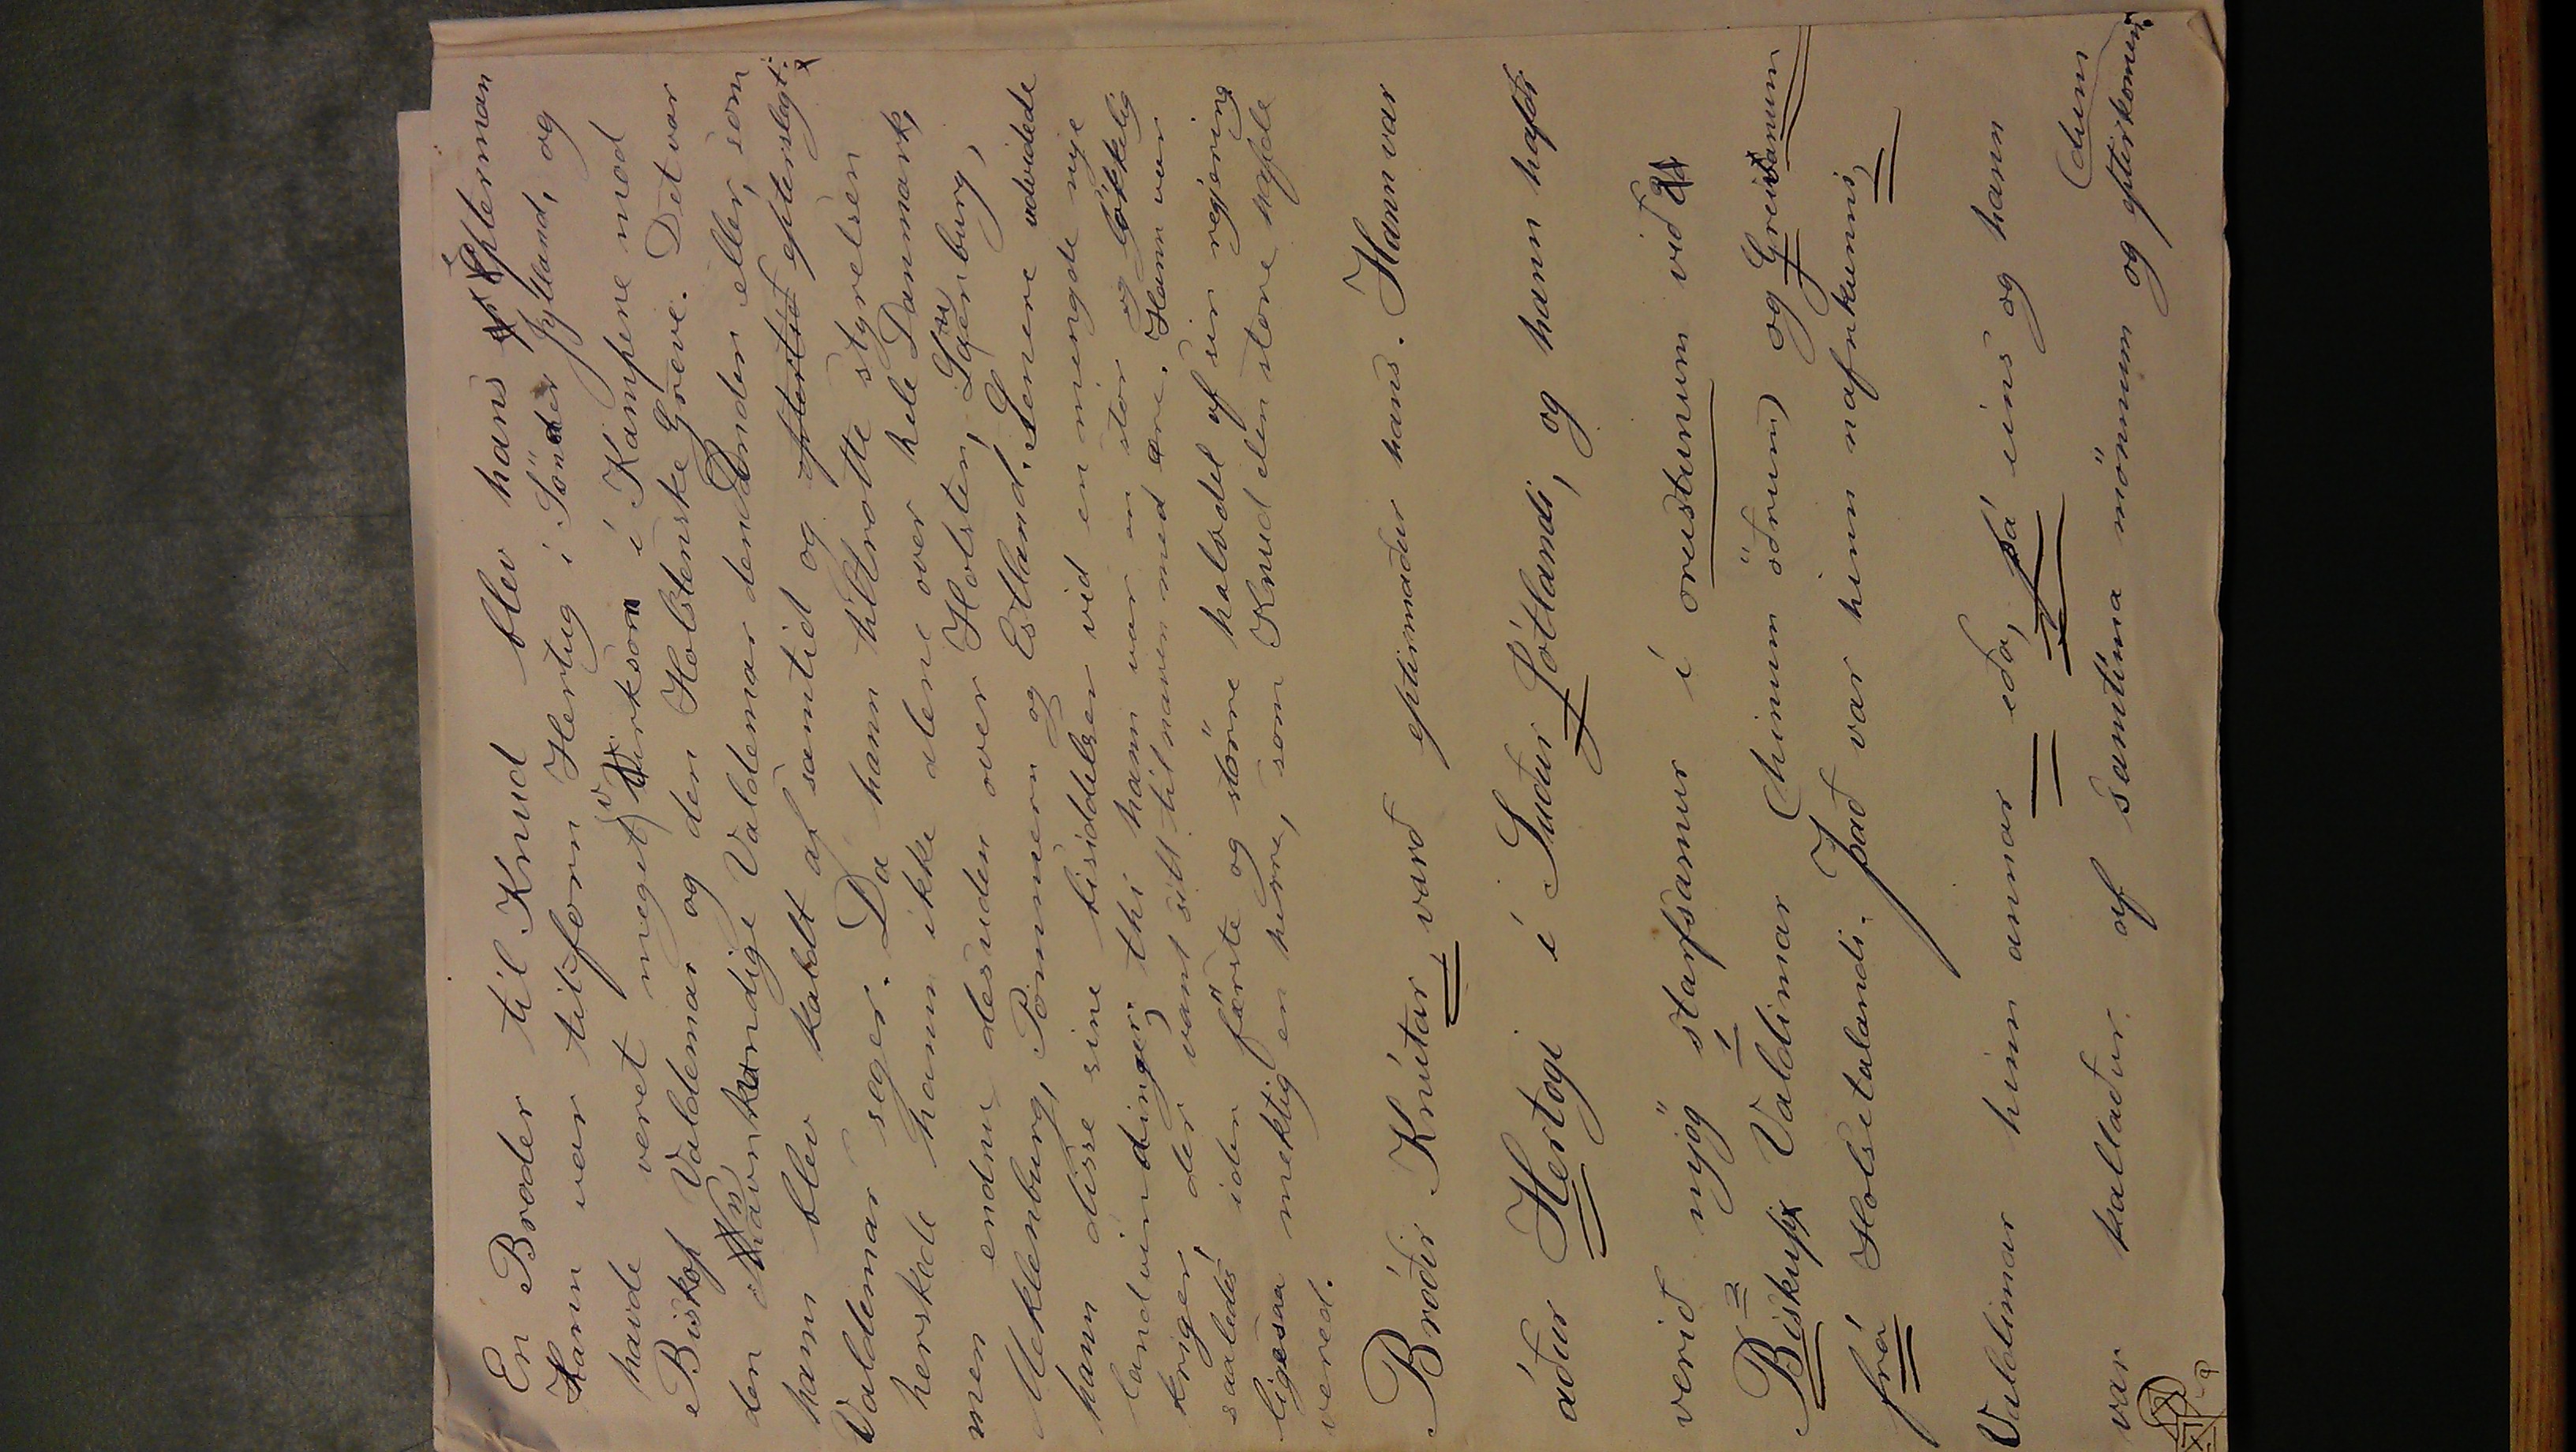 En Broder til Knud blev hans Epterman
Hann var tilforn Hertug i Sönder Jylland, og
havde veret meget virksom i Kampene mod
Biskop Valdemar og den Holstenske Greve. Det var
den navnkundige Valdemar den Anden eller, som
hann blev kaldt af samtid og eftertid epterslegt:
Valdemar seger. Da hann tiltrotte styrelsen
herskede hann ikke alene over hele Danmark,
men endnu desuden over Holsten, Lauenburg,
Meklenburg, Pommern og Estland. Senere udvidede
hann disse sine besiddelser vid en mengde nye
landvindinger, thi hann var en stor og lökkelig
kriger, der vant sitt tilnavn med ære. Hann var
saaledes iden förste og större halvdel af sin regjering
ligesaa mektig en herre, som Knud den store hafde
vered.
Bróðir Knútar varð eptirmaður hans. Hann var
áður Hertogi í Suður Jótlandi, og hann hafði
verið mjög starfsamur í orustunum við
Biskup Valdimar (hinum öðrum) og Greifanum
frá Holsetalandi. Það var hinn nafnkunni,
Valdimar hinn annar eða, sá eins og hann
var kallaður af samtíma mönnum og eptirkomen:
(dum